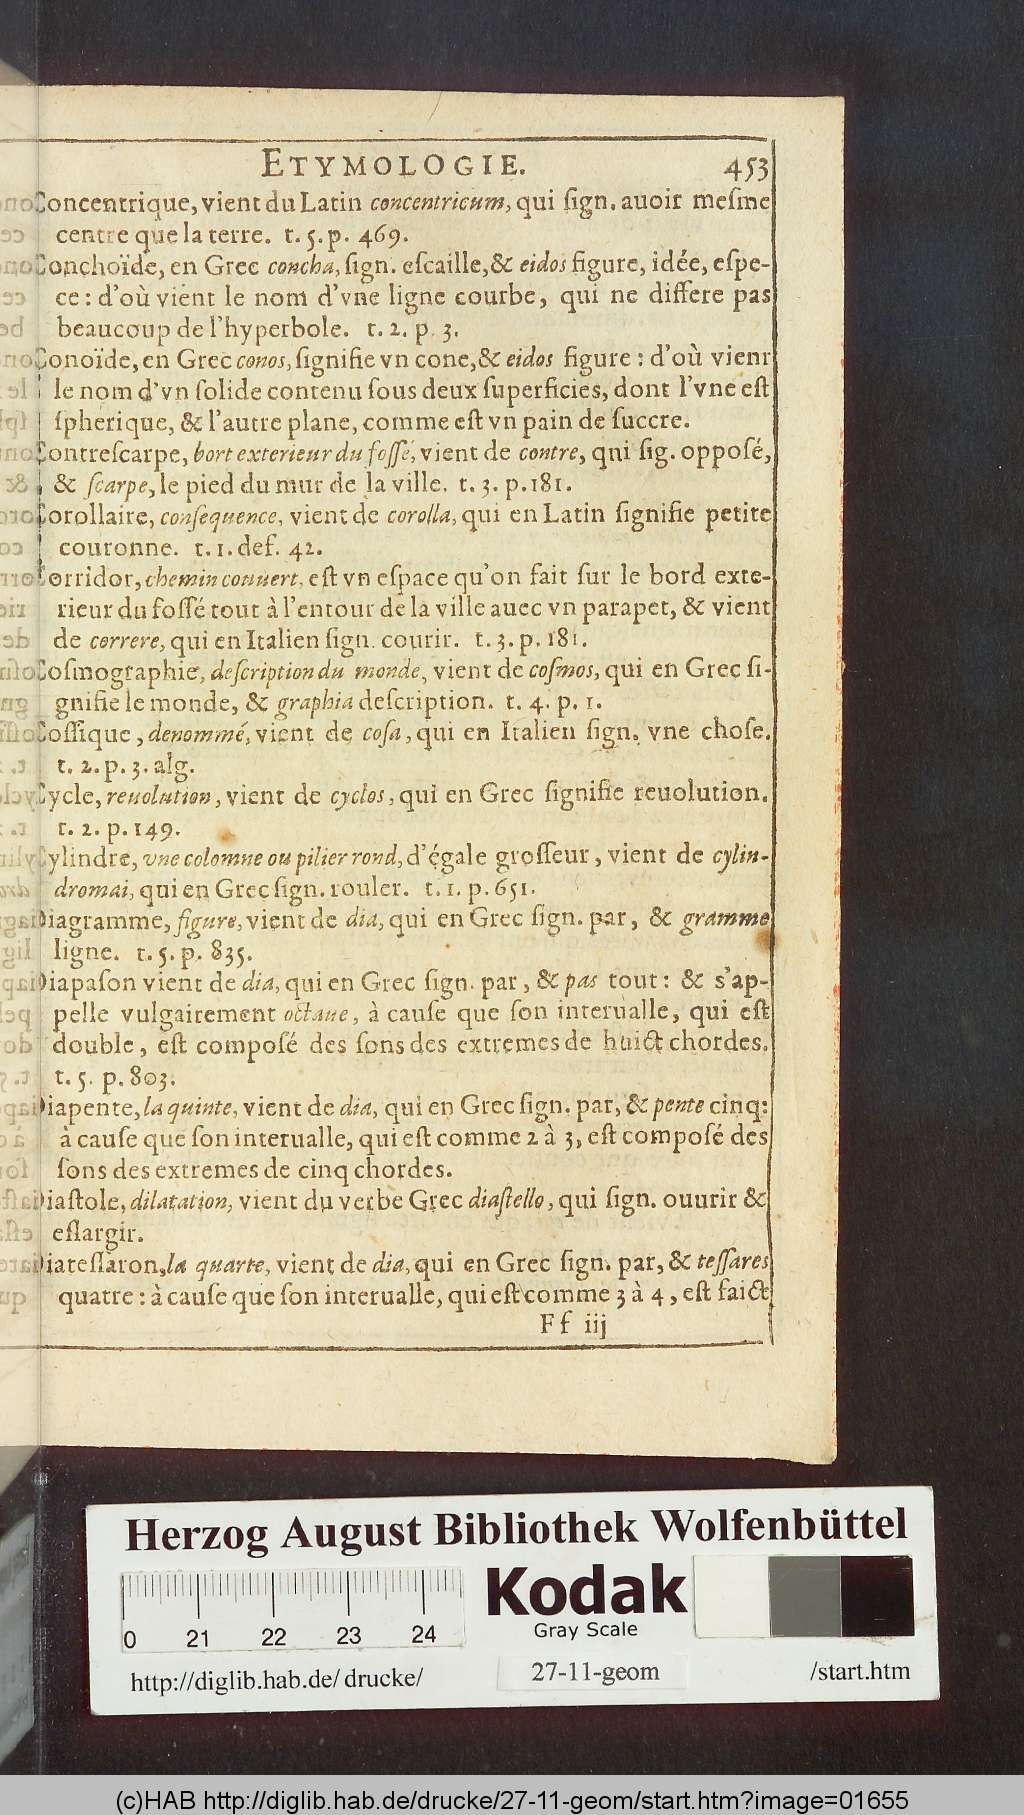 ETYMOLOGIE. 453
Concentrique, vient du Latin concentricum, qui ſign. auoir meſme
centre que la terre. t. 5. p. 469.
Conchoïde, en Grec concha, ſign. eſcaille, & eidos figure, idée, eſpe-
ce : d'où vient le nom d'vne ligne courbe, qui ne differe pas
beaucoup de l'hyperbole. t. 2. p. 3.
Conoïde, en Grec conos, ſignifie vn cone, & eidos figure : d'où vient
le nom d'vn ſolide contenu ſous deux ſuperficies, dont l'vne eſt
ſpherique, & l'autre plane, comme eſt vn pain de ſuccre.
Contreſcarpe, bort exterieur du foſſé, vient de contre, qui ſig. oppoſé,
& ſcarpe, le pied du mur de la ville. t. 3. p. 181.
Corollaire, conſequence, vient de corolla, qui en Latin ſignifie petite
couronne. t. 1. def. 42.
Corridor, chemin couuert, eſt vn eſpace qu'on fait ſur le bord exte-
rieur du foſſé tout à l'entour de la ville auec vn parapet, & vient
de correre, qui en Italien ſign. courir. t. 3. p. 181.
Coſmographie, deſcription du monde, vient de coſmos, qui en Grec ſi-
gnifie le monde, & graphia deſcription. t. 4. p. 1.
Coſſique, denommé, vient de coſa, qui en Italien ſign. vne choſe.
t. 2. p. 3. alg.
Cycle, reuolution, vient de cyclos, qui en Grec ſignifie reuolution.
t. 2. p. 149.
Cylindre, vne colomne ou pilier rond, d'égale groſſeur, vient de cylin-
dromai, qui en Grec ſign. rouler. t. 1. p. 651.
Diagramme, figure, vient de dia, qui en Grec ſign. par, & gramme
ligne. t. 5. p. 835.
Diapaſon vient de dia, qui en Grec ſign. par, & pas tout : & s'ap-
pelle vulgairement octaue, à cauſe que ſon interualle, qui eſt
double, eſt compoſé des ſons des extremes de huict chordes.
t. 5. p. 803.
Diapente, la quinte, vient de dia, qui en Grec ſign. par, & pente cinq:
à cauſe que ſon interualle, qui eſt comme 2 à 3, eſt compoſé des
ſons des extremes de cinq chordes.
Diaſtole, dilatation, vient du verbe Grec diaſtello, qui ſign. ouurir &
eſlargir.
Diateſſaron, la quarte, vient de dia, qui en Grec ſign. par, & teſſares
quatre : à cauſe que ſon interualle, qui eſt comme 3 à 4, eſt faict
Ff iij
Herzog August Bibliothek Wolfenbüttel
Kodak
Gray Scale
0 21 22 23 24
http://diglib.hab.de/ drucke/ 27-11-geom /start.htm
(c)HAB http://diglib.hab.de/drucke/27-11-geom/start.htm?image=01655